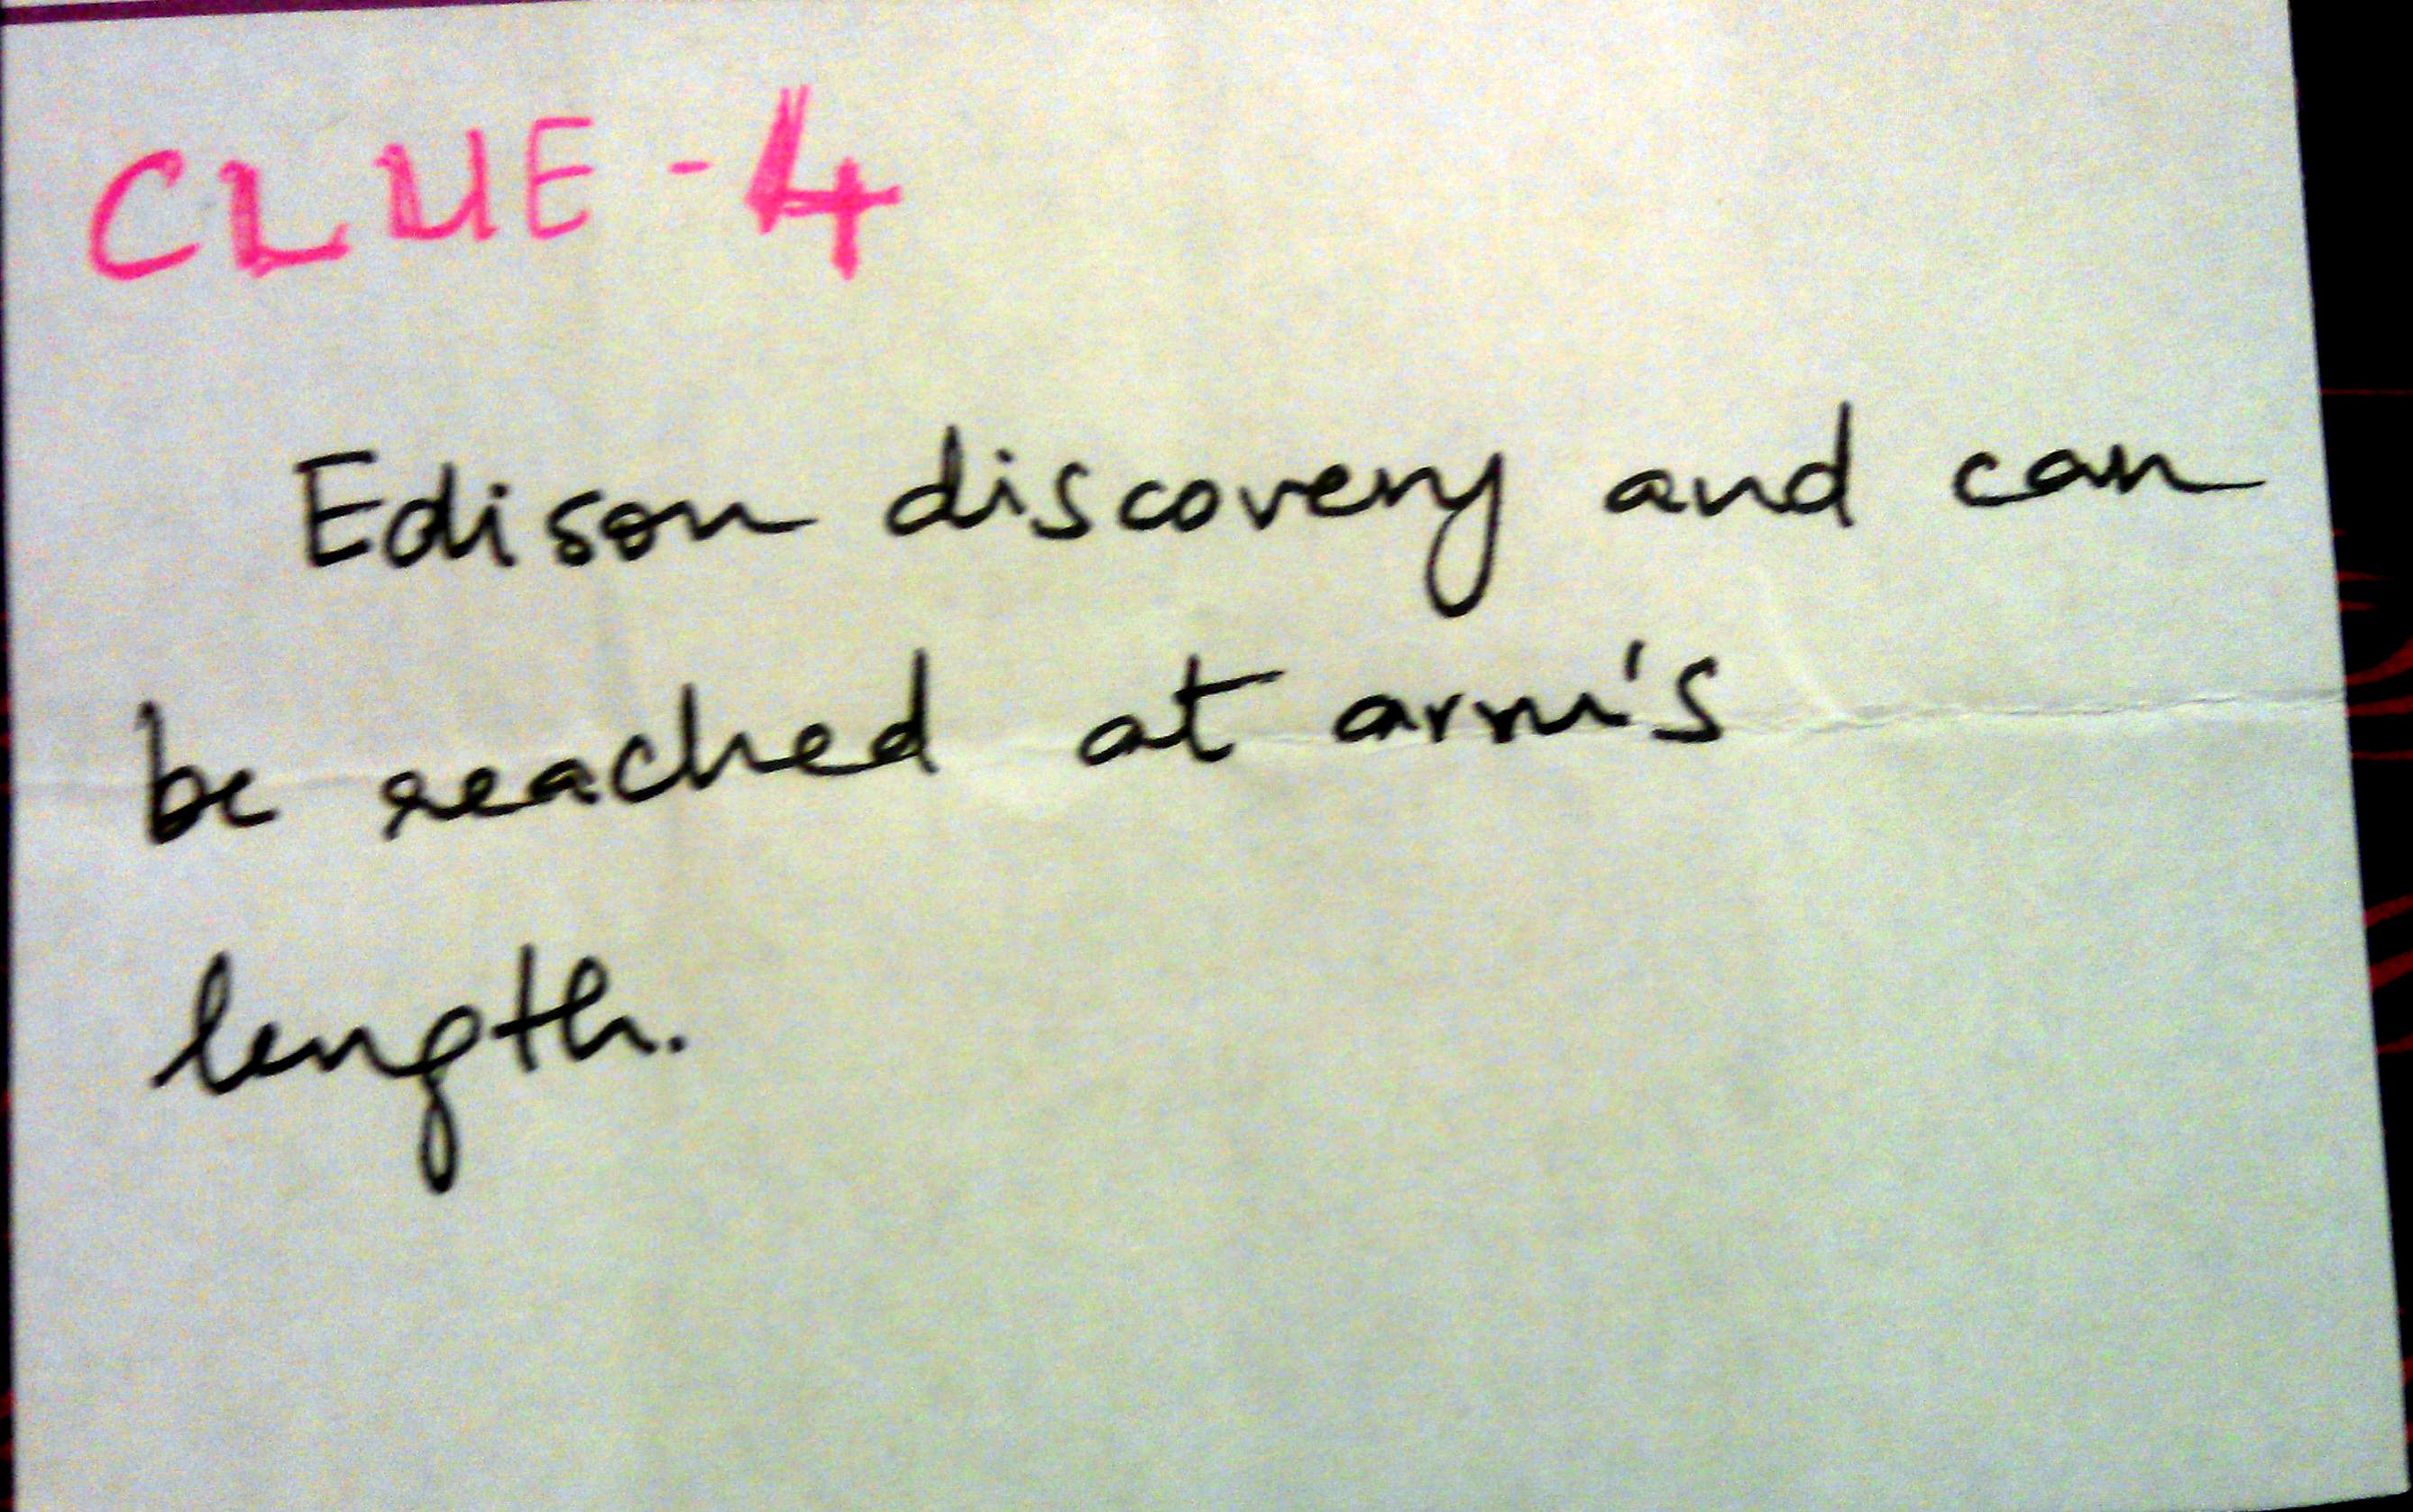 CLUE - 4
Edison discovery and can
be reached at arm's
length.